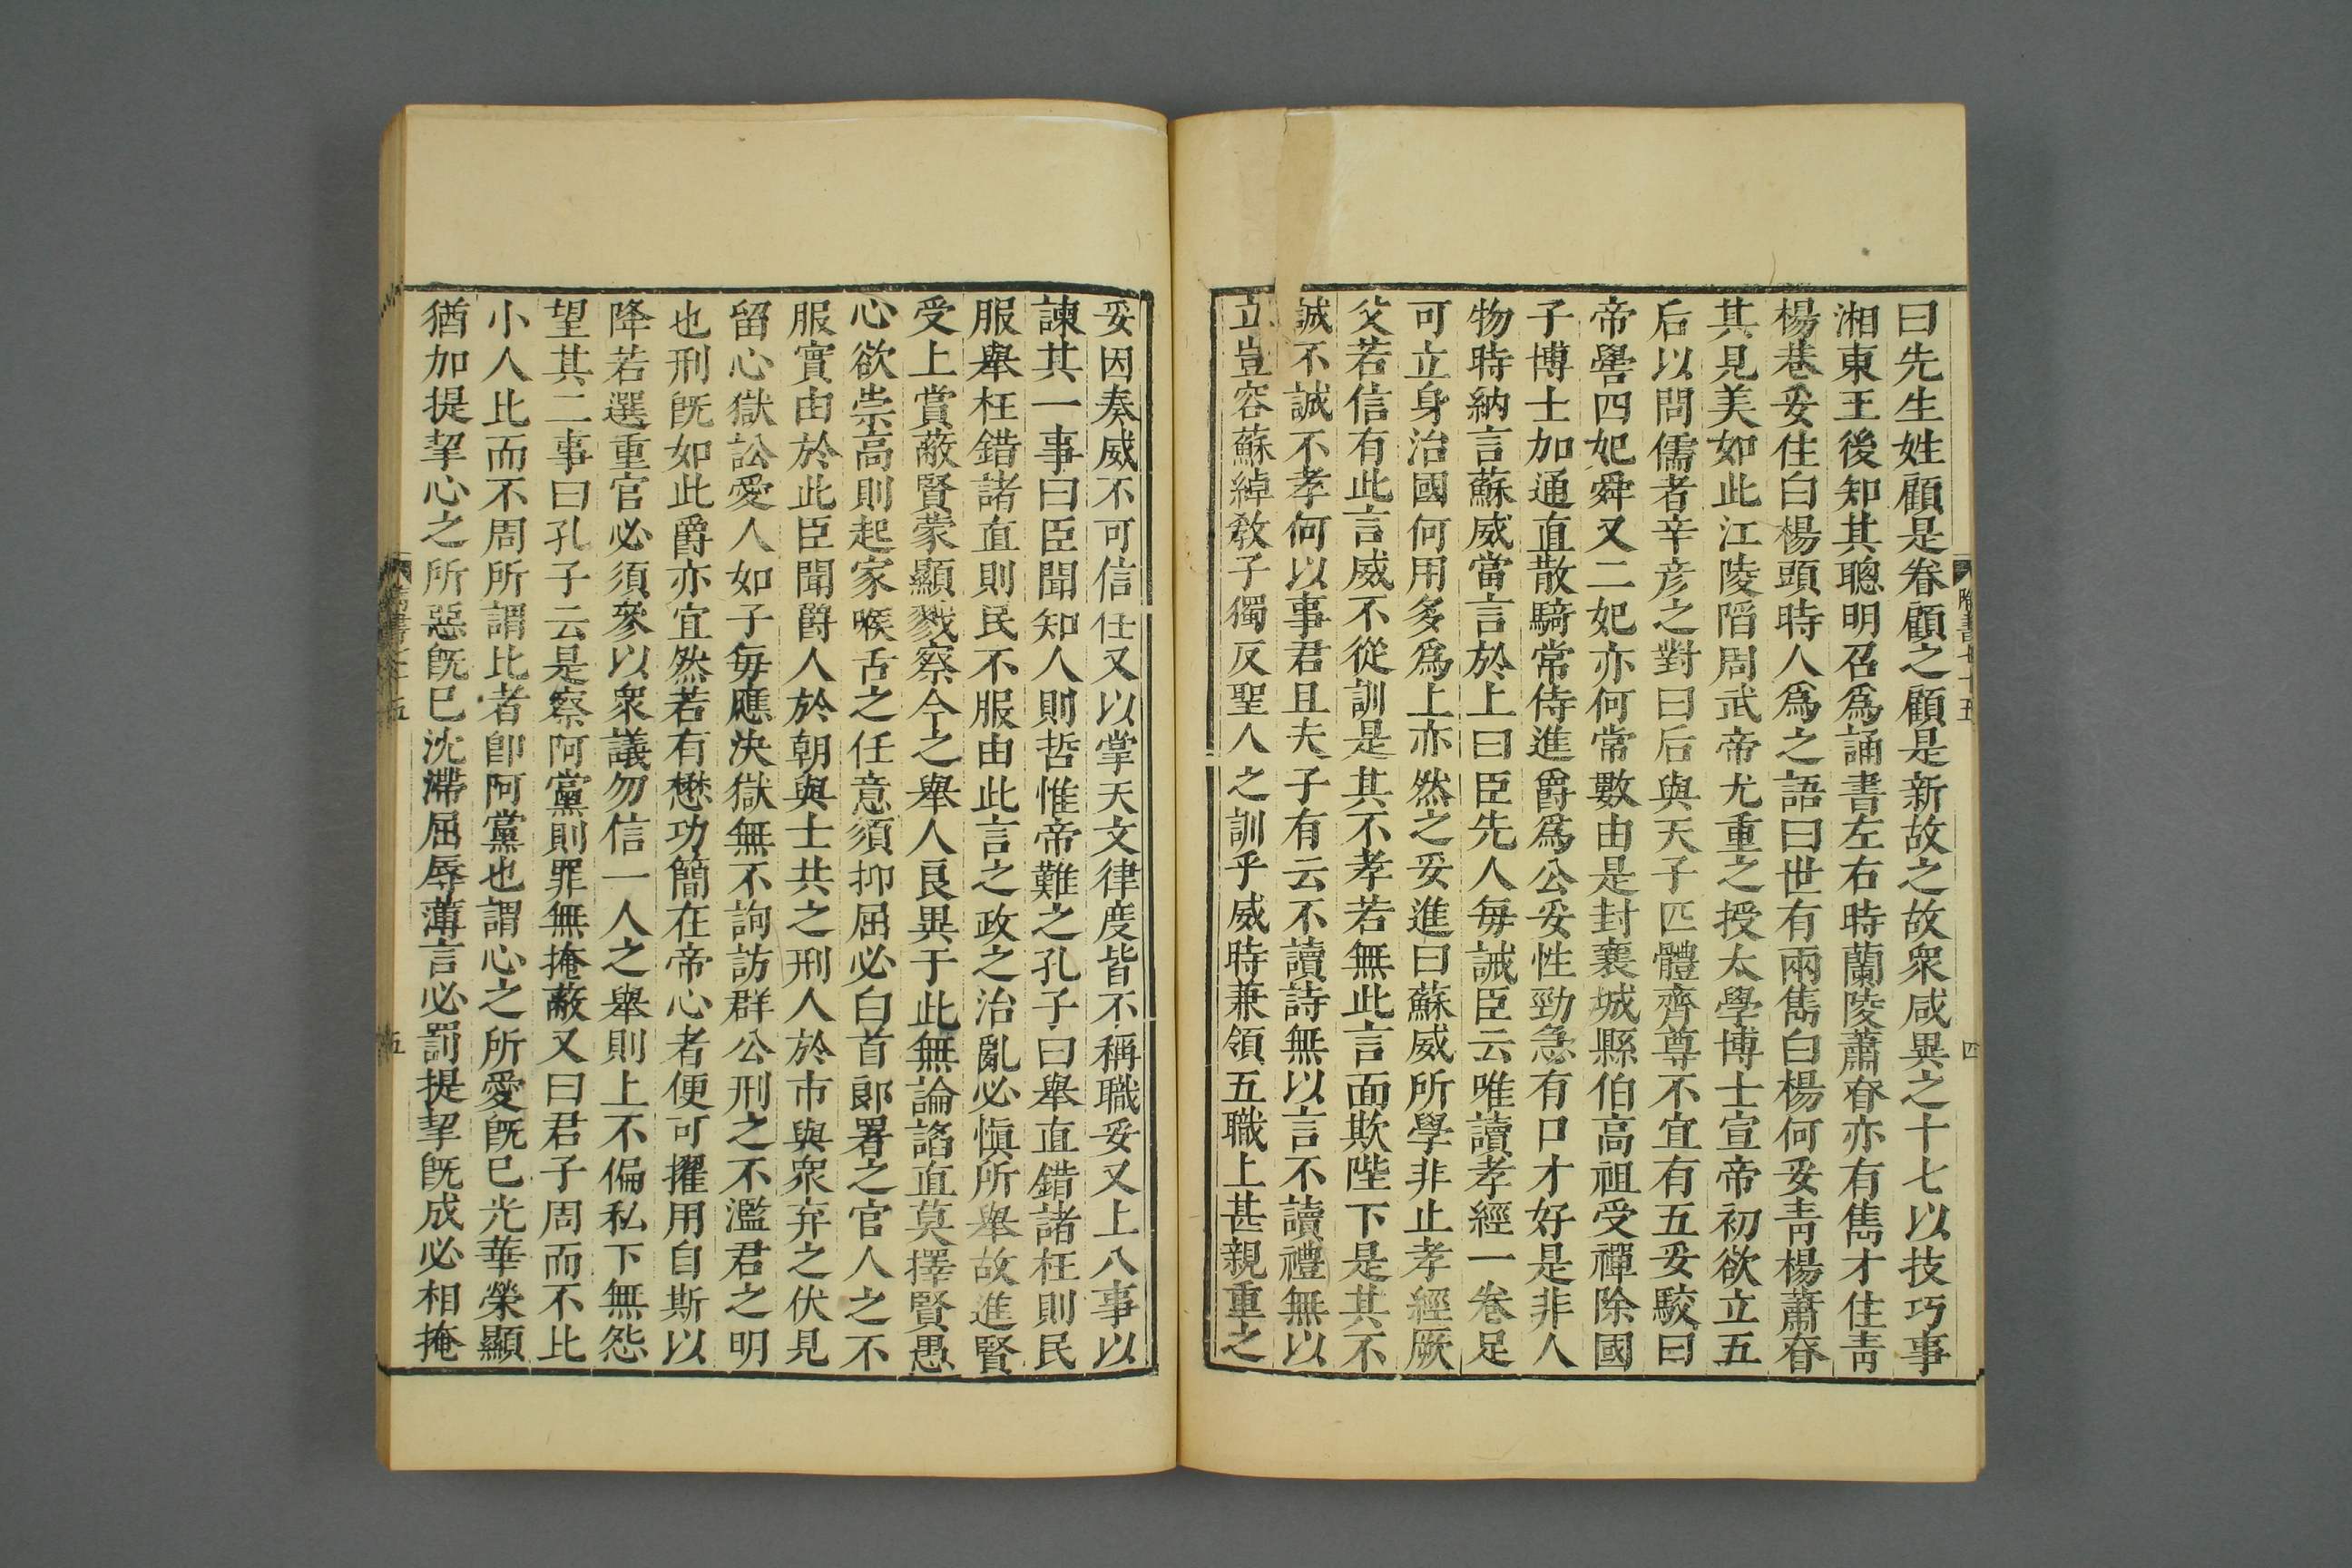 曰先生姓顧是眷顧之顧是新故之故衆咸異之十七以技巧事
湘東王後知其聰明召爲誦書左右時蘭陵蕭眘亦有雋才住靑
楊巷妥住白楊頭時人爲之語曰世有兩雋白楊何妥靑楊蕭眘
其見美如此江陵䧟周武帝尤重之授太學博士宣帝初欲立五
后以問儒者辛彦之對曰后與天子匹體齊尊不宜有五妥駮曰
帝嚳四妃舜又二妃亦何常數由是封襄城縣伯高祖受禪除國
子博士加通直散騎常侍進爵爲公妥性勁急有口才好是非人
物時納言蘇威當言於上曰臣先人每誡臣云唯讀孝經一卷足
可立身治國何用多爲上亦然之妥進曰蘇威所學非止孝經厥
父若信有此言威不從訓是其不孝若無此言面欺陛下是其不
誠不誠不孝何以事君且夫子有云不讀詩無以言不讀禮無以
立豈容蘇綽敎子獨反聖人之訓乎威時兼領五職上甚親重之
隋書七十五
四
妥因奏威不可信任又以掌天文律度皆不稱職妥又上八事以
諫其一事曰臣聞知人則哲惟帝難之孔子曰舉直錯諸枉則民
服舉枉錯諸直則民不服由此言之政之治亂必慎所舉故進賢
受上賞蔽賢蒙顯戮察今之舉人良異于此無論諂直莫擇賢愚
心欲崇高則起家喉舌之任意須抑屈必白首郞署之官人之不
服實由於此臣聞爵人於朝與士共之刑人於市與衆弃之伏見
留心獄訟愛人如子每應決獄無不詢訪群公刑之不濫君之明
也刑旣如此爵亦宜然若有懋功簡在帝心者便可擢用自斯以
降若選重官必須參以衆議勿信一人之舉則上不偏私下無怨
望其二事曰孔子云是察阿黨則罪無掩蔽又曰君子周而不比
小人比而不周所謂比者卽阿黨也謂心之所愛旣已光華榮顯
猶加提挈心之所惡旣已沈滯屈辱薄言必罰提挈旣成必相掩
五